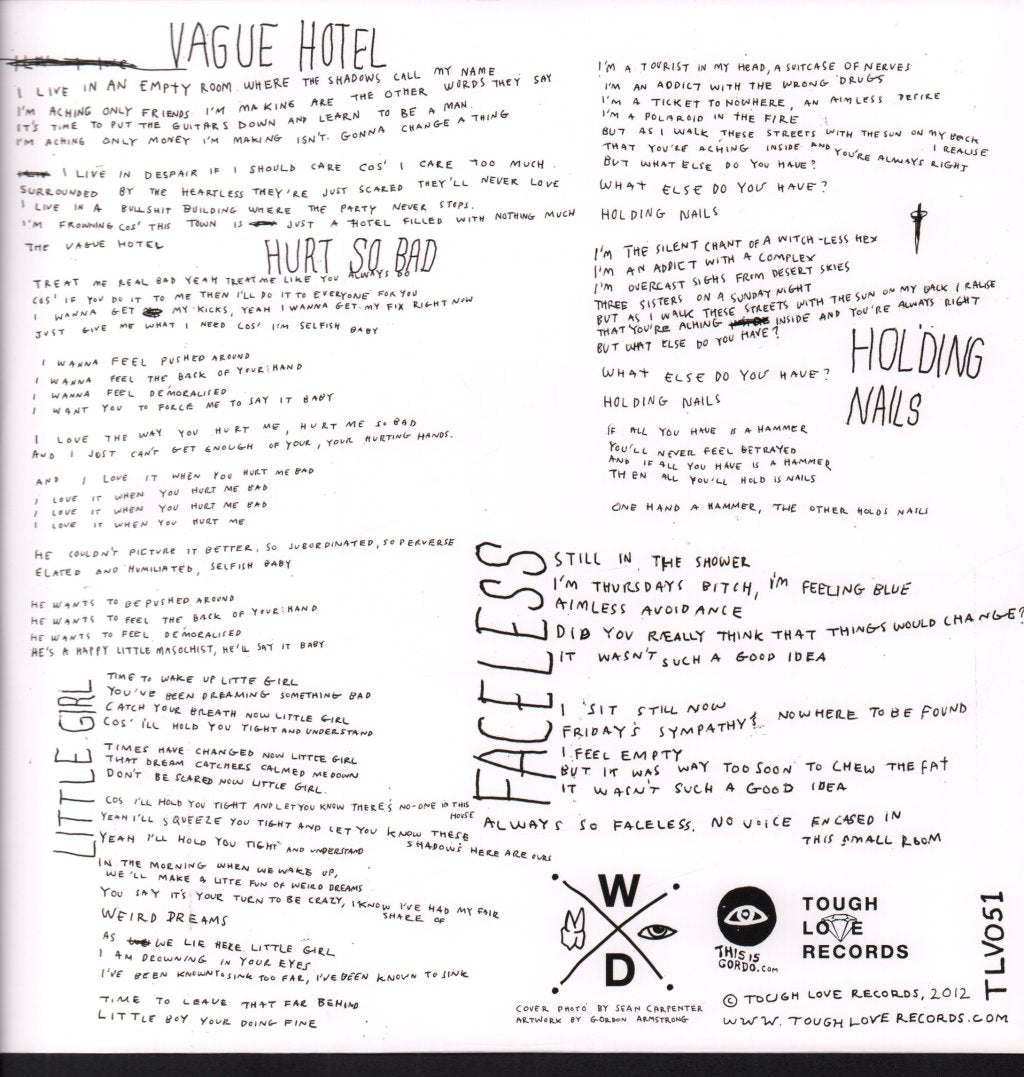 VAGUE HOTEL
I LIVE IN AN EMPTY ROOM WHERE THE SHADOWS CALL MY NAME
I'M ACHING ONLY FRIENDS I'M MAKING ARE THE OTHER WORDS THEY SAY
IT'S TIME TO PUT THE GUITARS DOWN AND LEARN TO BE A MAN.
I'M ACHING ONLY MONEY I'M MAKING ISN'T GONNA CHANGE A THING
I LIVE IN DESPAIR IF I SHOULD CARE COS' I CARE TOO MUCH.
SURROUNDED BY THE HEARTLESS THEY'RE JUST SCARED THEY'LL NEVER LOVE
I LIVE IN A BULLSHIT BUILDING WHERE THE PARTY NEVER STOPS.
I'M FROWNING COS' THIS TOWN IS JUST A HOTEL FILLED WITH NOTHING MUCH
THE VAGUE HOTEL
HURT SO BAD
TREAT ME REAL BAD YEAH TREAT ME LIKE YOU ALWAYS DO
COS' IF YOU DO IT TO ME THEN I'LL DO IT TO EVERYONE FOR YOU
I WANNA GET MY KICKS, YEAH I WANNA GET MY FIX RIGHT NOW
JUST GIVE ME WHAT I NEED COS' I'M SELFISH BABY
I WANNA FEEL PUSHED AROUND
I WANNA FEEL THE BACK OF YOUR HAND
I WANNA FEEL DEMORALISED
I WANT YOU TO FORCE ME TO SAY IT BABY
I LOVE THE WAY YOU HURT ME, HURT ME SO BAD
AND I JUST CAN'T GET ENOUGH OF YOUR, YOUR HURTING HANDS.
AND I LOVE IT WHEN YOU HURT ME BAD
I LOVE IT WHEN YOU HURT ME BAD
I LOVE IT WHEN YOU HURT ME BAD
I LOVE IT WHEN YOU HURT ME
HE COULDN'T PICTURE IT BETTER, SO SUBORDINATED, SO PERVERSE
ELATED AND HUMILIATED, SELFISH BABY
HE WANTS TO BE PUSHED AROUND
HE WANTS TO FEEL THE BACK OF YOUR HAND
HE WANTS TO FEEL DEMORALISED
HE'S A HAPPY LITTLE MASOCHIST, HE'LL SAY IT BABY
LITTLE GIRL
TIME TO WAKE UP LITTE GIRL
YOU'VE BEEN DREAMING SOMETHING BAD
CATCH YOUR BREATH NOW LITTLE GIRL
COS' I'LL HOLD YOU TIGHT AND UNDERSTAND
TIMES HAVE CHANGED NOW LITTLE GIRL
THAT DREAM CATCHERS CALMED ME DOWN
DON'T BE SCARED NOW LITTLE GIRL.
COS I'LL HOLD YOU TIGHT AND LET YOU KNOW THERE'S NO-ONE IN THIS
HOUSE
YEAH I'LL SQUEEZE YOU TIGHT AND LET YOU KNOW THESE
SHADOWS HERE ARE OURS
YEAH I'LL HOLD YOU TIGHT AND UNDERSTAND
IN THE MORNING WHEN WE WAKE UP,
WE'LL MAKE A LITTE FUN OF WEIRD DREAMS
YOU SAY IT'S YOUR TURN TO BE CRAZY, I KNOW I'VE HAD MY FAIR
SHARE OF
WEIRD DREAMS
AS WE LIE HERE LITTLE GIRL
I AM DROWNING IN YOUR EYES
I'VE BEEN KNOWN TO SINK TOO FAR, I'VE BEEN KNOWN TO SINK
TIME TO LEAVE THAT FAR BEHIND
LITTLE BOY YOUR DOING FINE
I'M A TOURIST IN MY HEAD, A SUITCASE OF NERVES
I'M AN ADDICT WITH THE WRONG DRUGS
I'M A TICKET TO NOWHERE, AN AIMLESS DESIRE
I'M A POLAROID IN THE FIRE
BUT AS I WALK THESE STREETS WITH THE SUN ON MY BACK
I REALISE
THAT YOU'RE ACHING INSIDE AND YOU'RE ALWAYS RIGHT
BUT WHAT ELSE DO YOU HAVE?
WHAT ELSE DO YOU HAVE?
HOLDING NAILS
I'M THE SILENT CHANT OF A WITCH-LESS HEX
I'M AN ADDICT WITH A COMPLEX
I'M OVERCAST SIGHS FROM DESERT SKIES
THREE SISTERS ON A SUNDAY NIGHT
BUT AS I WALK THESE STREETS WITH THE SUN ON MY BACK I RALISE
THAT YOU'RE ACHING INSIDE AND YOU'RE ALWAYS RIGHT
BUT WHAT ELSE DO YOU HAVE?
WHAT ELSE DO YOU HAVE?
HOLDING NAILS
HOLDING
NAILS
IF ALL YOU HAVE IS A HAMMER
YOU'LL NEVER FEEL BETRAYED
AND IF ALL YOU HAVE IS A HAMMER
THEN ALL YOU'LL HOLD IS NAILS
ONE HAND A HAMMER, THE OTHER HOLDS NAILS
FACELESS
STILL IN THE SHOWER
I'M THURSDAYS BITCH, I'M FEELING BLUE
AIMLESS AVOIDANCE
DID YOU REALLY THINK THAT THINGS WOULD CHANGE?
IT WASN'T SUCH A GOOD IDEA
I SIT STILL NOW
FRIDAY'S SYMPATHY'S NOWHERE TO BE FOUND
I FEEL EMPTY
BUT IT WAS WAY TOO SOON TO CHEW THE FAT
IT WASN'T SUCH A GOOD IDEA
ALWAYS SO FACELESS. NO VOICE ENCASED IN
THIS SMALL ROOM
W
D
COVER PHOTO BY SEAN CARPENTER
ARTWORK BY GORDON ARMSTRONG
THIS IS
GORDO.COM
TOUGH
LOVE
RECORDS
© TOUGH LOVE RECORDS, 2012
WWW.TOUGHLOVERECORDS.COM
TLV051